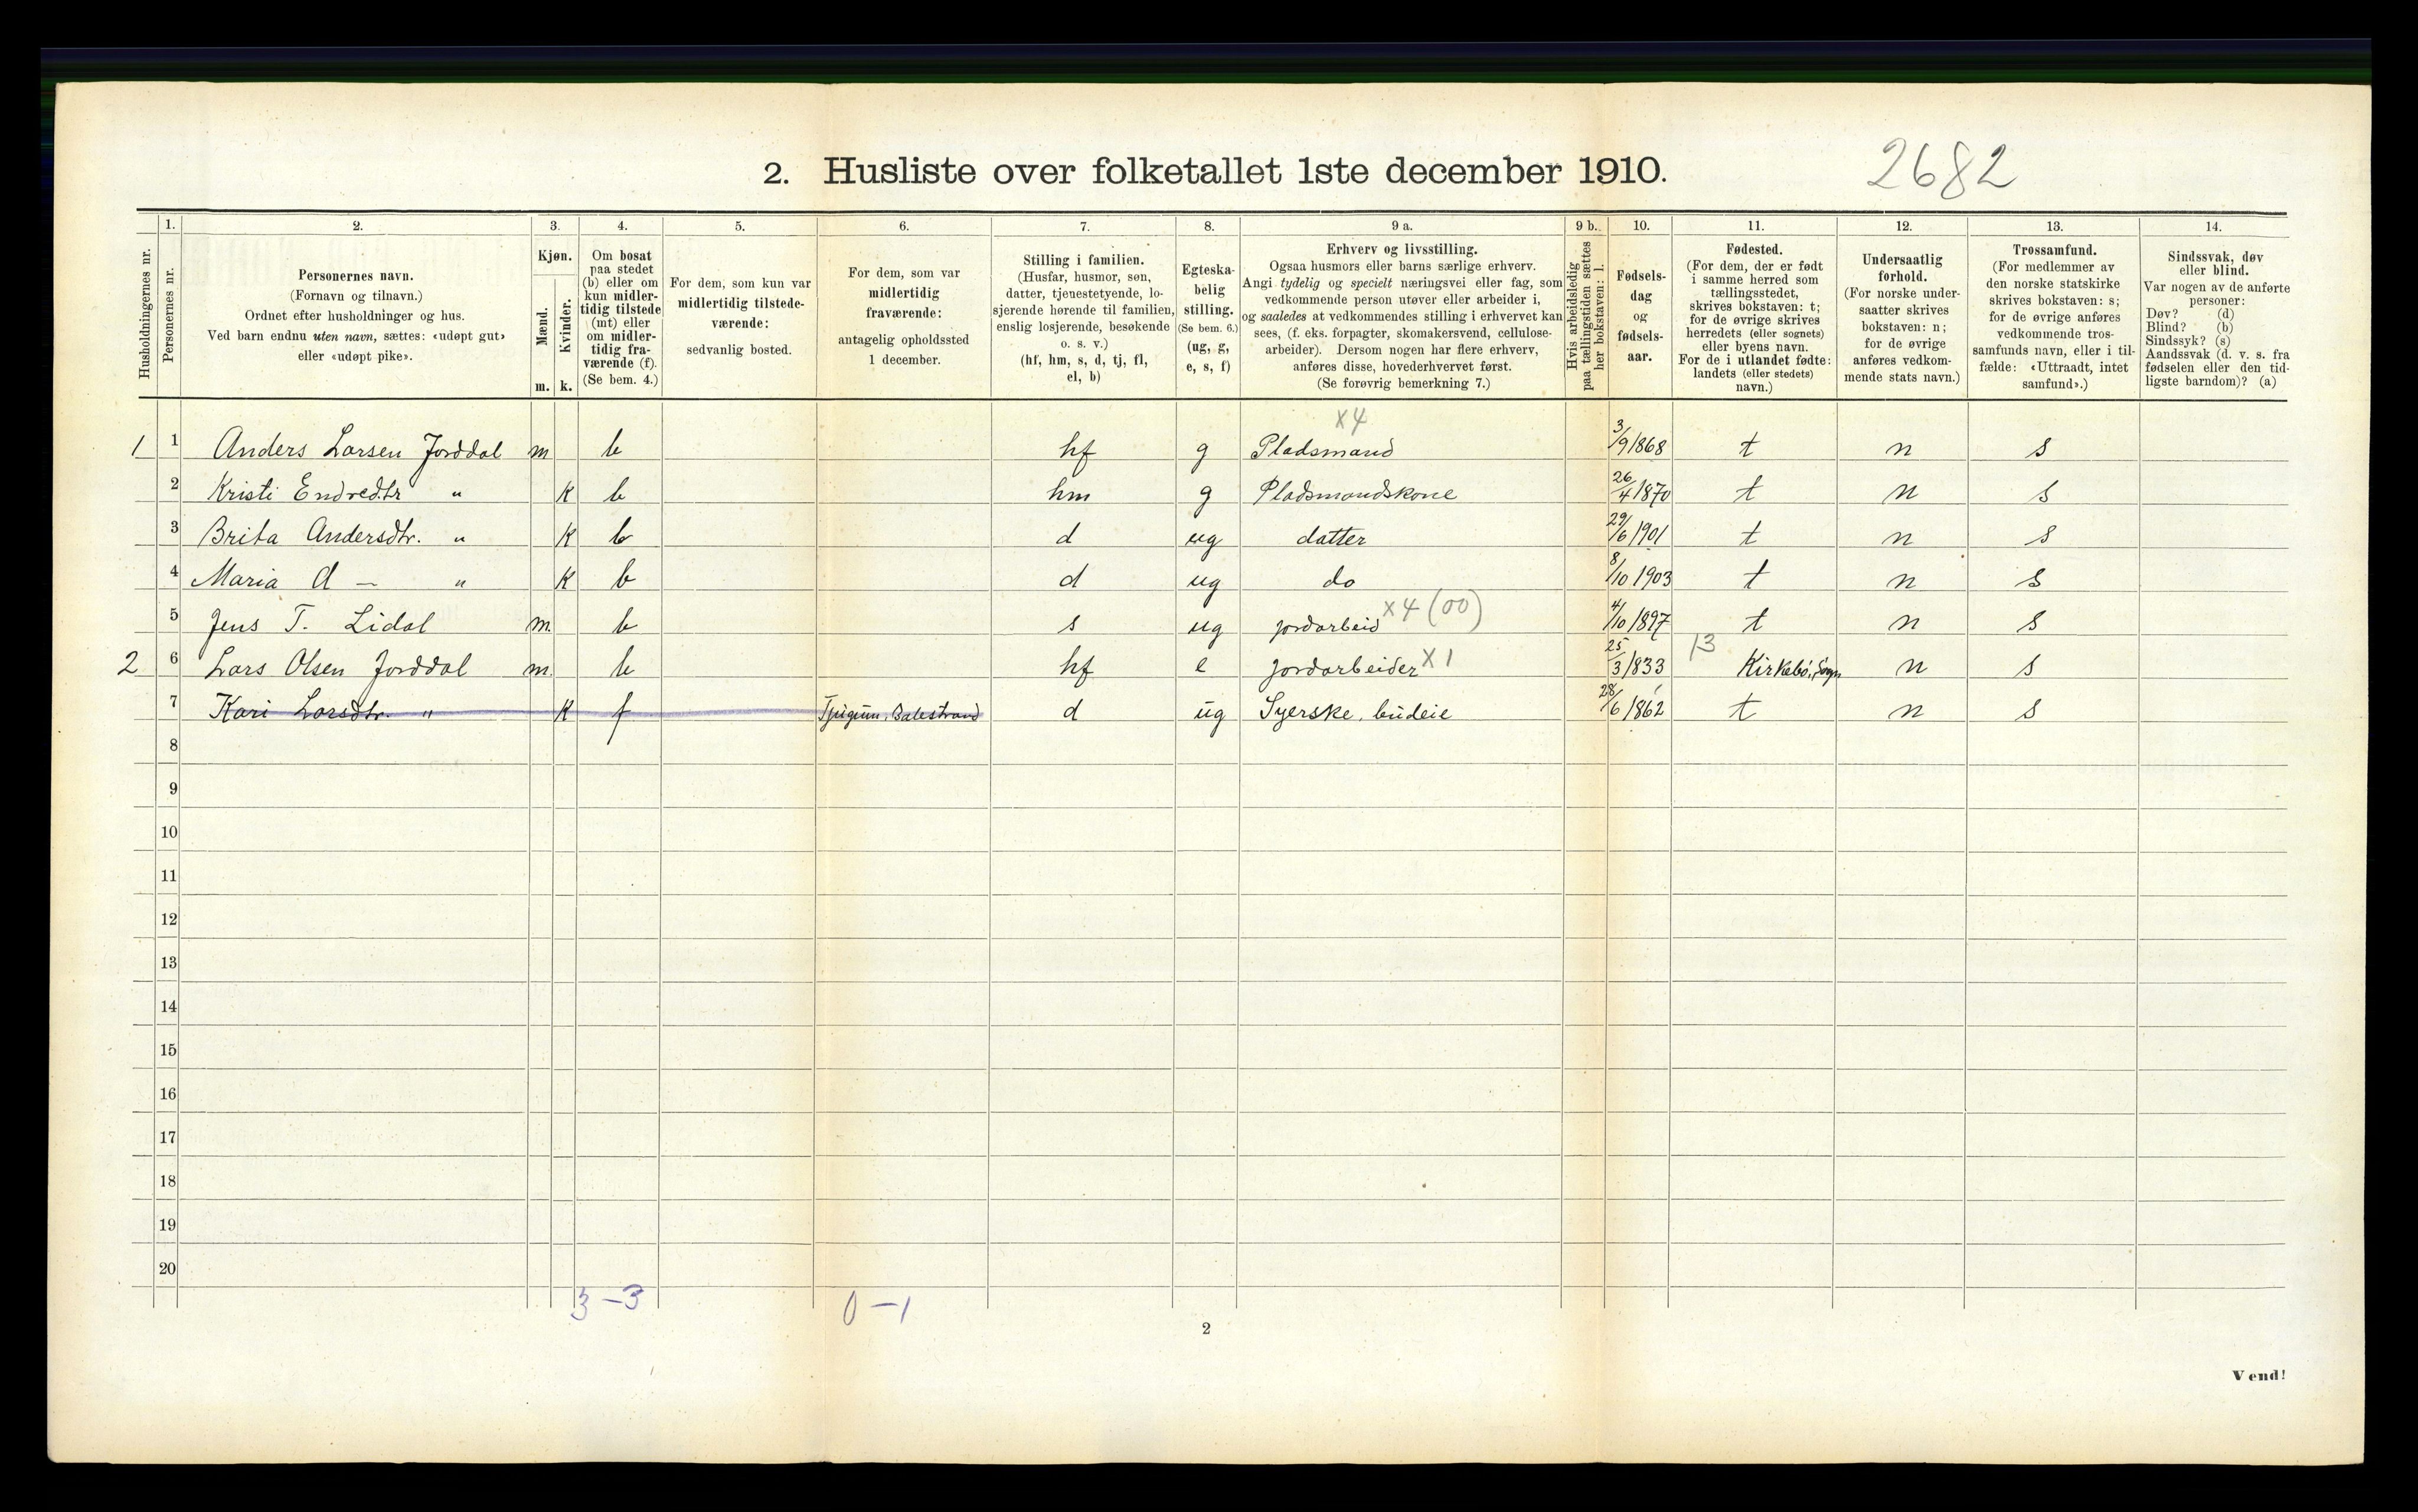 2. Husliste over folketallet 1ste december 1910.
2682
Husholdningernes nr.
1.
Personernes nr.
2.
Personernes navn.
(Fornavn og tilnavn.)
Ordnet efter husholdninger og hus.
Ved barn endnu uten navn, sættes: «udøpt gut»
eller «udøpt pike».
3.
Kjøn.
Mænd.
Kvinder.
m. k.
4.
Om bosat
paa stedet
(b) eller om
kun midler-
tidig tilstede
(mt) eller
om midler-
tidig fra-
værende (f).
(Se bem. 4.)
5.
For dem, som kun var
midlertidig tilstede-
værende:
sedvanlig bosted.
6.
For dem, som var
midlertidig
fraværende:
antagelig opholdssted
1 december.
7.
Stilling i familien.
(Husfar, husmor, søn,
datter, tjenestetyende, lo-
sjerende hørende til familien,
enslig losjerende, besøkende
o. s. v.)
(hf, hm, s, d, tj, fl,
el, b)
8.
Egteska-
belig
stilling.
(Se bem. 6.)
(ug, g,
e, s, f)
9 a.
Erhverv og livsstilling.
Ogsaa husmors eller barns særlige erhverv.
Angi tydelig og specielt næringsvei eller fag, som
vedkommende person utøver eller arbeider i,
og saaledes at vedkommendes stilling i erhvervet kan
sees, (f. eks. forpagter, skomakersvend, cellulose-
arbeider). Dersom nogen har flere erhverv,
anføres disse, hovederhvervet først.
(Se forøvrig bemerkning 7.)
9 b.
Hvis arbeidsledig
paa tællingstiden sættes
her bokstaven: l.
10.
Fødsels-
dag
og
fødsels-
aar.
11.
Fødested.
(For dem, der er født
i samme herred som
tællingsstedet,
skrives bokstaven: t;
for de øvrige skrives
herredets (eller sognets)
eller byens navn.
For de i utlandet fødte:
landets (eller stedets)
navn.)
12.
Undersaatlig
forhold.
(For norske under-
saatter skrives
bokstaven: n;
for de øvrige
anføres vedkom-
mende stats navn.)
13.
Trossamfund.
(For medlemmer av
den norske statskirke
skrives bokstaven: s;
for de øvrige anføres
vedkommende tros-
samfunds navn, eller i til-
fælde: «Uttraadt, intet
samfund».)
14.
Sindssvak, døv
eller blind.
Var nogen av de anførte
personer:
Døv? (d)
Blind? (b)
Sindssyk? (s)
Aandssvak (d. v. s. fra
fødselen eller den tid-
ligste barndom)? (a)
x4
1 1 Anders Larsen Jorddal m b hf g Pladsmand 3/9 1868 t n s
2 Kristi Endredtr " k b hm g Pladsmandskone 26/4 1870 t n s
3 Brita Andersdtr. " k b d ug datter 29/6 1901 t n s
4 Maria A — " k b d ug do 8/10 1903 t n s
5 Jens T. Lidal m. b s ug jordarbeid x4 (00) 4/10 1897 t n s
2 6 Lars Olsen Jorddal m. b hf e jordarbeider x1 25/3 1833 13 Kirkebö, Sogn n s
7 Kari Larsdtr. " k f Tjugum, Balestrand d ug Syerske, budeie 28/6 1862 t n s
8
9
10
11
12
13
14
15
16
17
18
19
20
3 – 3 0 – 1
2
Vend!